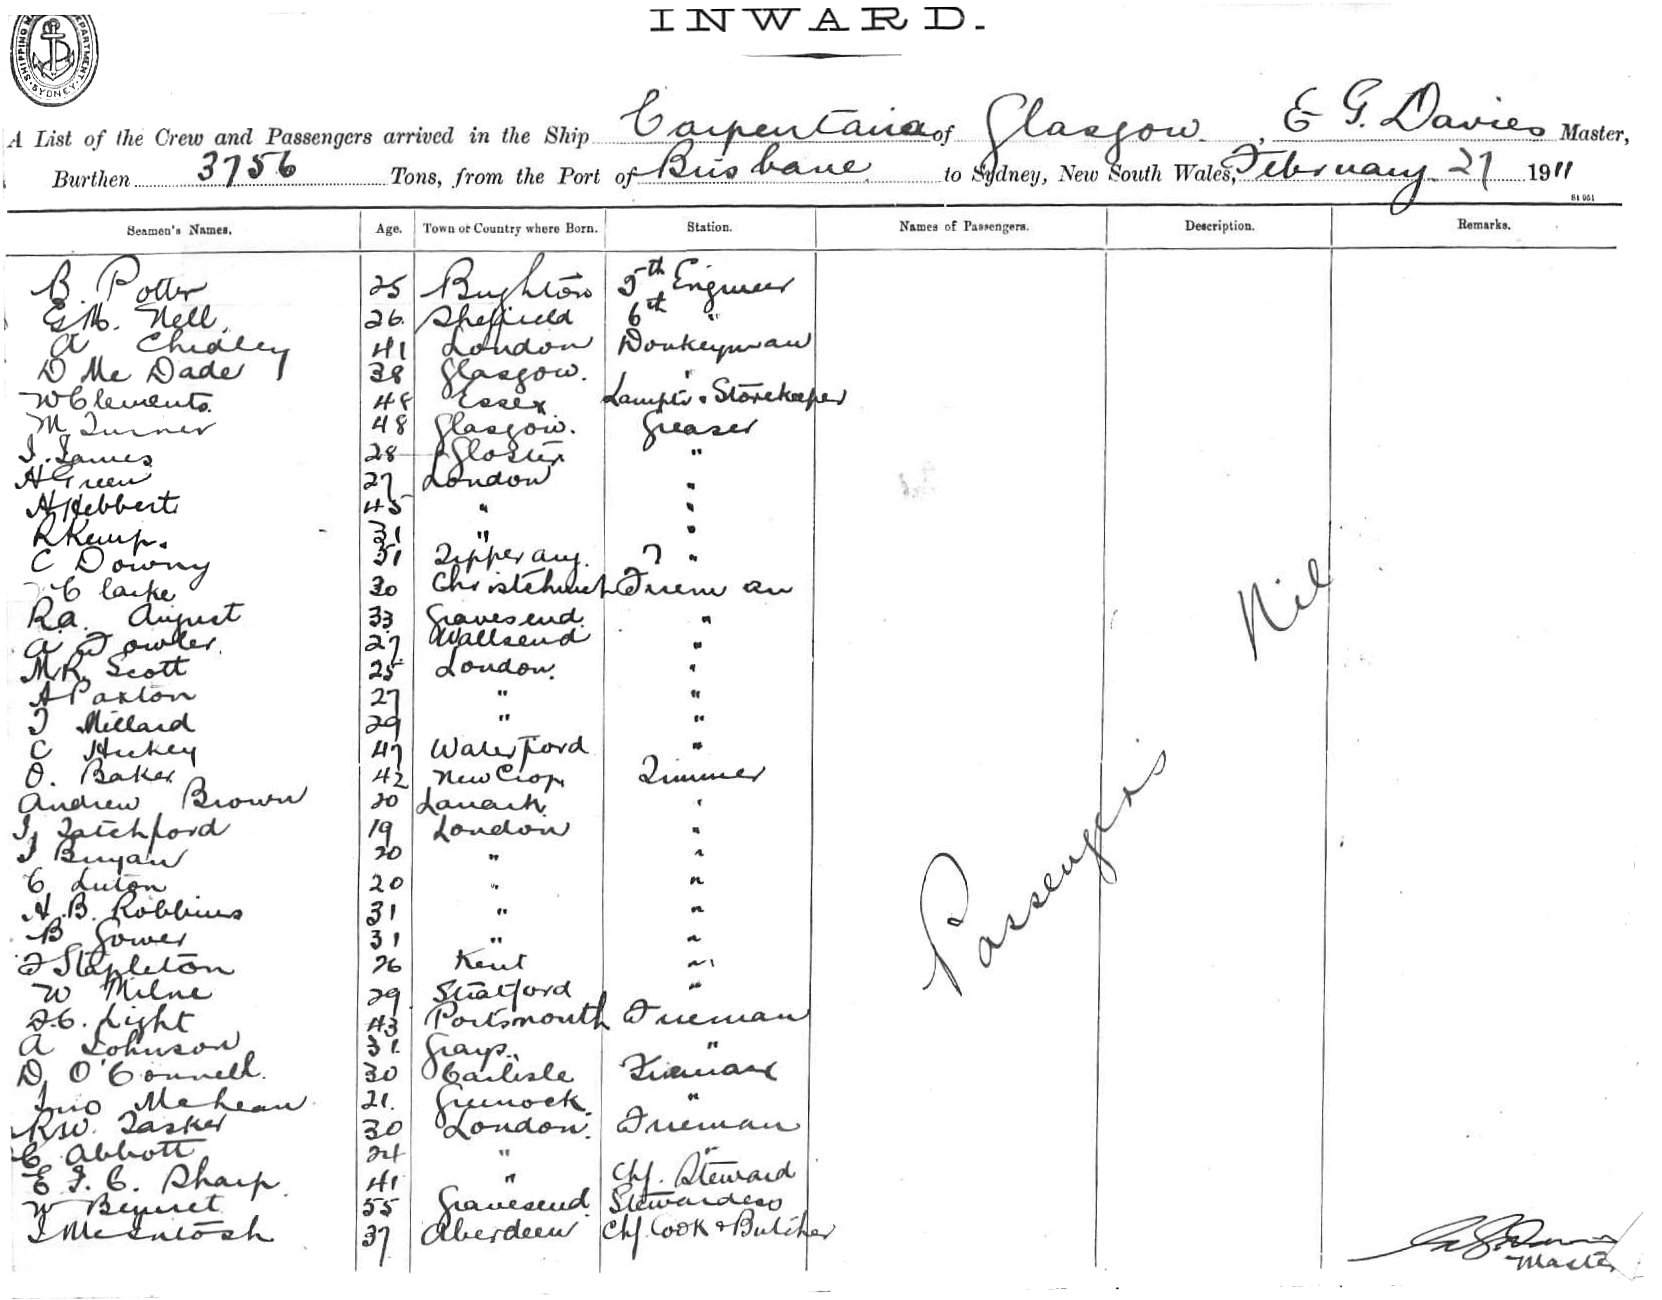 INWARD.
SHIPPING DEPARTMENT SYDNEY
A List of the Crew and Passengers arrived in the Ship Carpentaria of Glasgow, E G. Davies Master,
Burthen 3756 Tons, from the Port of Brisbane to Sydney, New South Wales, February 27 1911
Seamen's Names. Age. Town or Country where Born. Station. Names of Passengers. Description. Remarks.
B. Potter 25 Brighton 5th Engineer
Nell 26 Sheffield 6th "
A Chidley 41 London Donkeyman
D Mc Dade 38 Glasgow. "
W Clements 48 Essex Lamptr & Storekeeper
M Turner 48 Glasgow. Greaser
J. James 28 Gloster "
H Green 27 London "
H Hebbert 45 " "
R Kemp. 31 " "
C Downy 31 Tipperary. "
Clarke 30 Christchurch Fireman
R.A. August 33 Gravesend. "
A Fowler. 27 Wallsend "
M.R. Scott 25 London. "
A Paxton 27 " "
J Millard 29 " "
C Hickey 47 Waterford "
O. Baker 42 New Cross Trimmer
Andrew Brown 20 Lanark "
J. Tatchford 19 London "
J Bunyan 20 " "
C Luton 20 " "
H.B. Robbins 31 " "
B Gower 31 " "
F Stapleton 26 Kent "
W Milne 29 Stratford "
F.C. Light 43 Portsmouth Fireman
A Johnson 31. Grays. "
D. O'Connell. 30 Carlisle Fireman
Jno McLean 21. Greenock. "
R.W. Tasker 30 London. Fireman
C Abbott 24 " "
E. J. C. Sharp. 41 " Chf. Steward
W Bennet 55 Gravesend Stewardess
J McIntosh 37 Aberdeen Chf. Cook & Butcher
Passengers Nil
Master